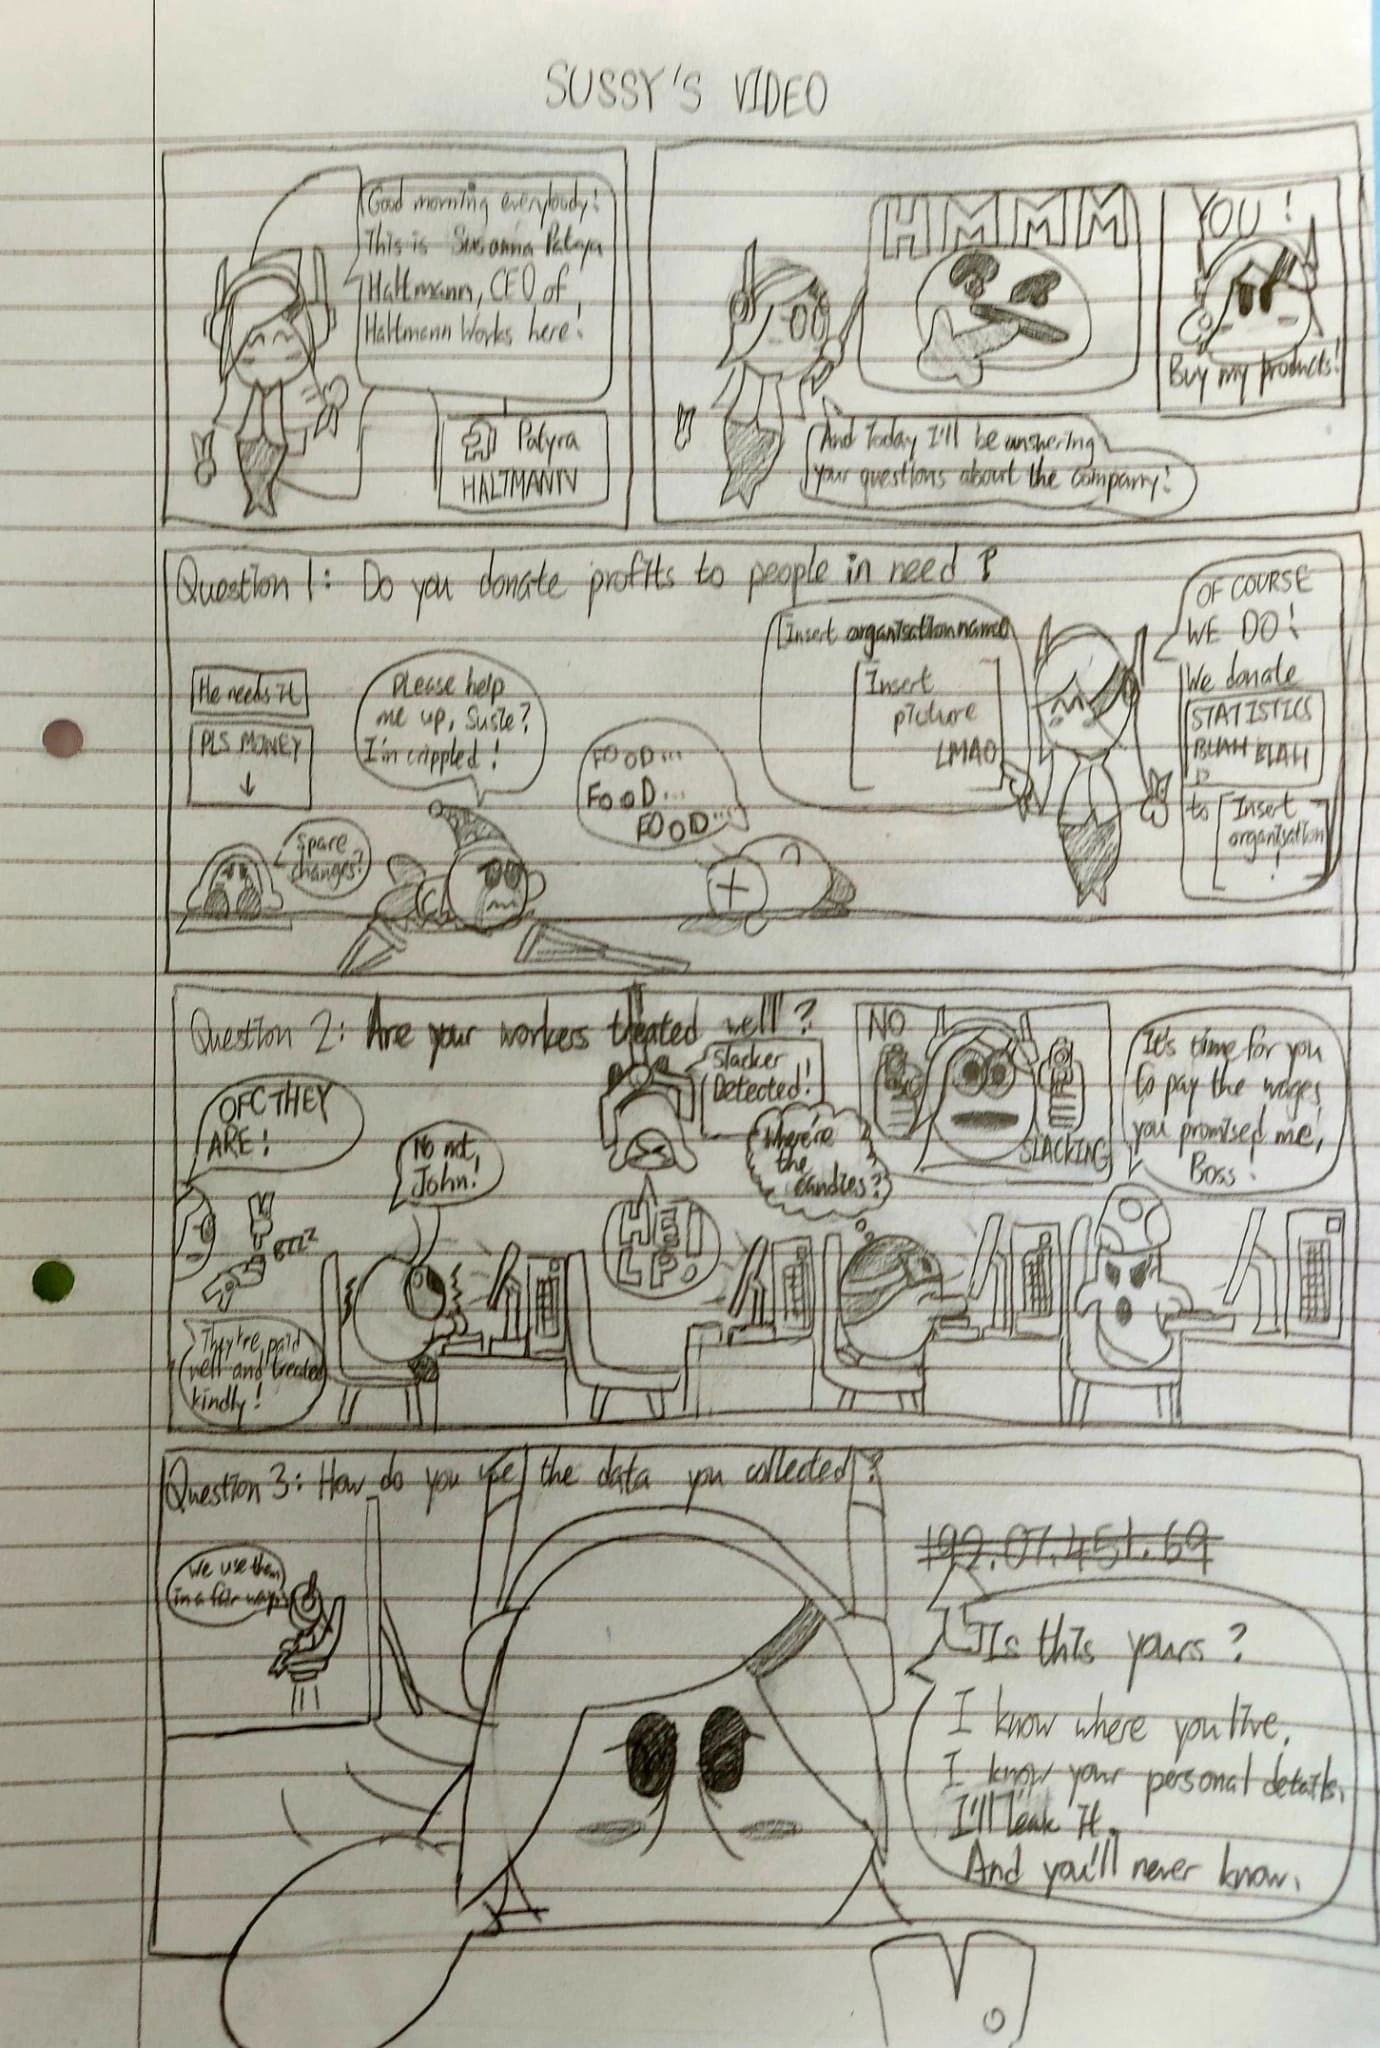 SUSSY'S VIDEO
Good morning everybody!
This is Susanna Patrya
Haltmann, CEO of
Haltmann Works here!
Patyra
HALTMANN
HMMM
YOU!
Buy my products!
And Today I'll be answering
your questions about the company!
Question 1: Do you donate profits to people in need?
He needs it
PLS MONEY
Spare
changes?
Please help
me up, Susie?
I'm crippled!
FOOD...
FOOD...
FOOD...
[Insert organisation name]
[Insert
picture
LMAO]
OF COURSE
WE DO!
We donate
STATISTICS
BLAH BLAH
to [Insert
organisation]
!
Question 2: Are your workers treated well?
OFC THEY
ARE!
BZZZ
They're paid
well and treated
kindly!
No not,
John!
Slacker
Detected!
HE
LP!
Where're
the
candies?
NO
SLACKING
It's time for you
to pay the wages
you promised me,
Boss!
Question 3: How do you use the data you collected?
We use them
in a fair way
192.07.451.69
Is this yours?
I know where you live,
I know your personal details.
I'll leak it.
And you'll never know.